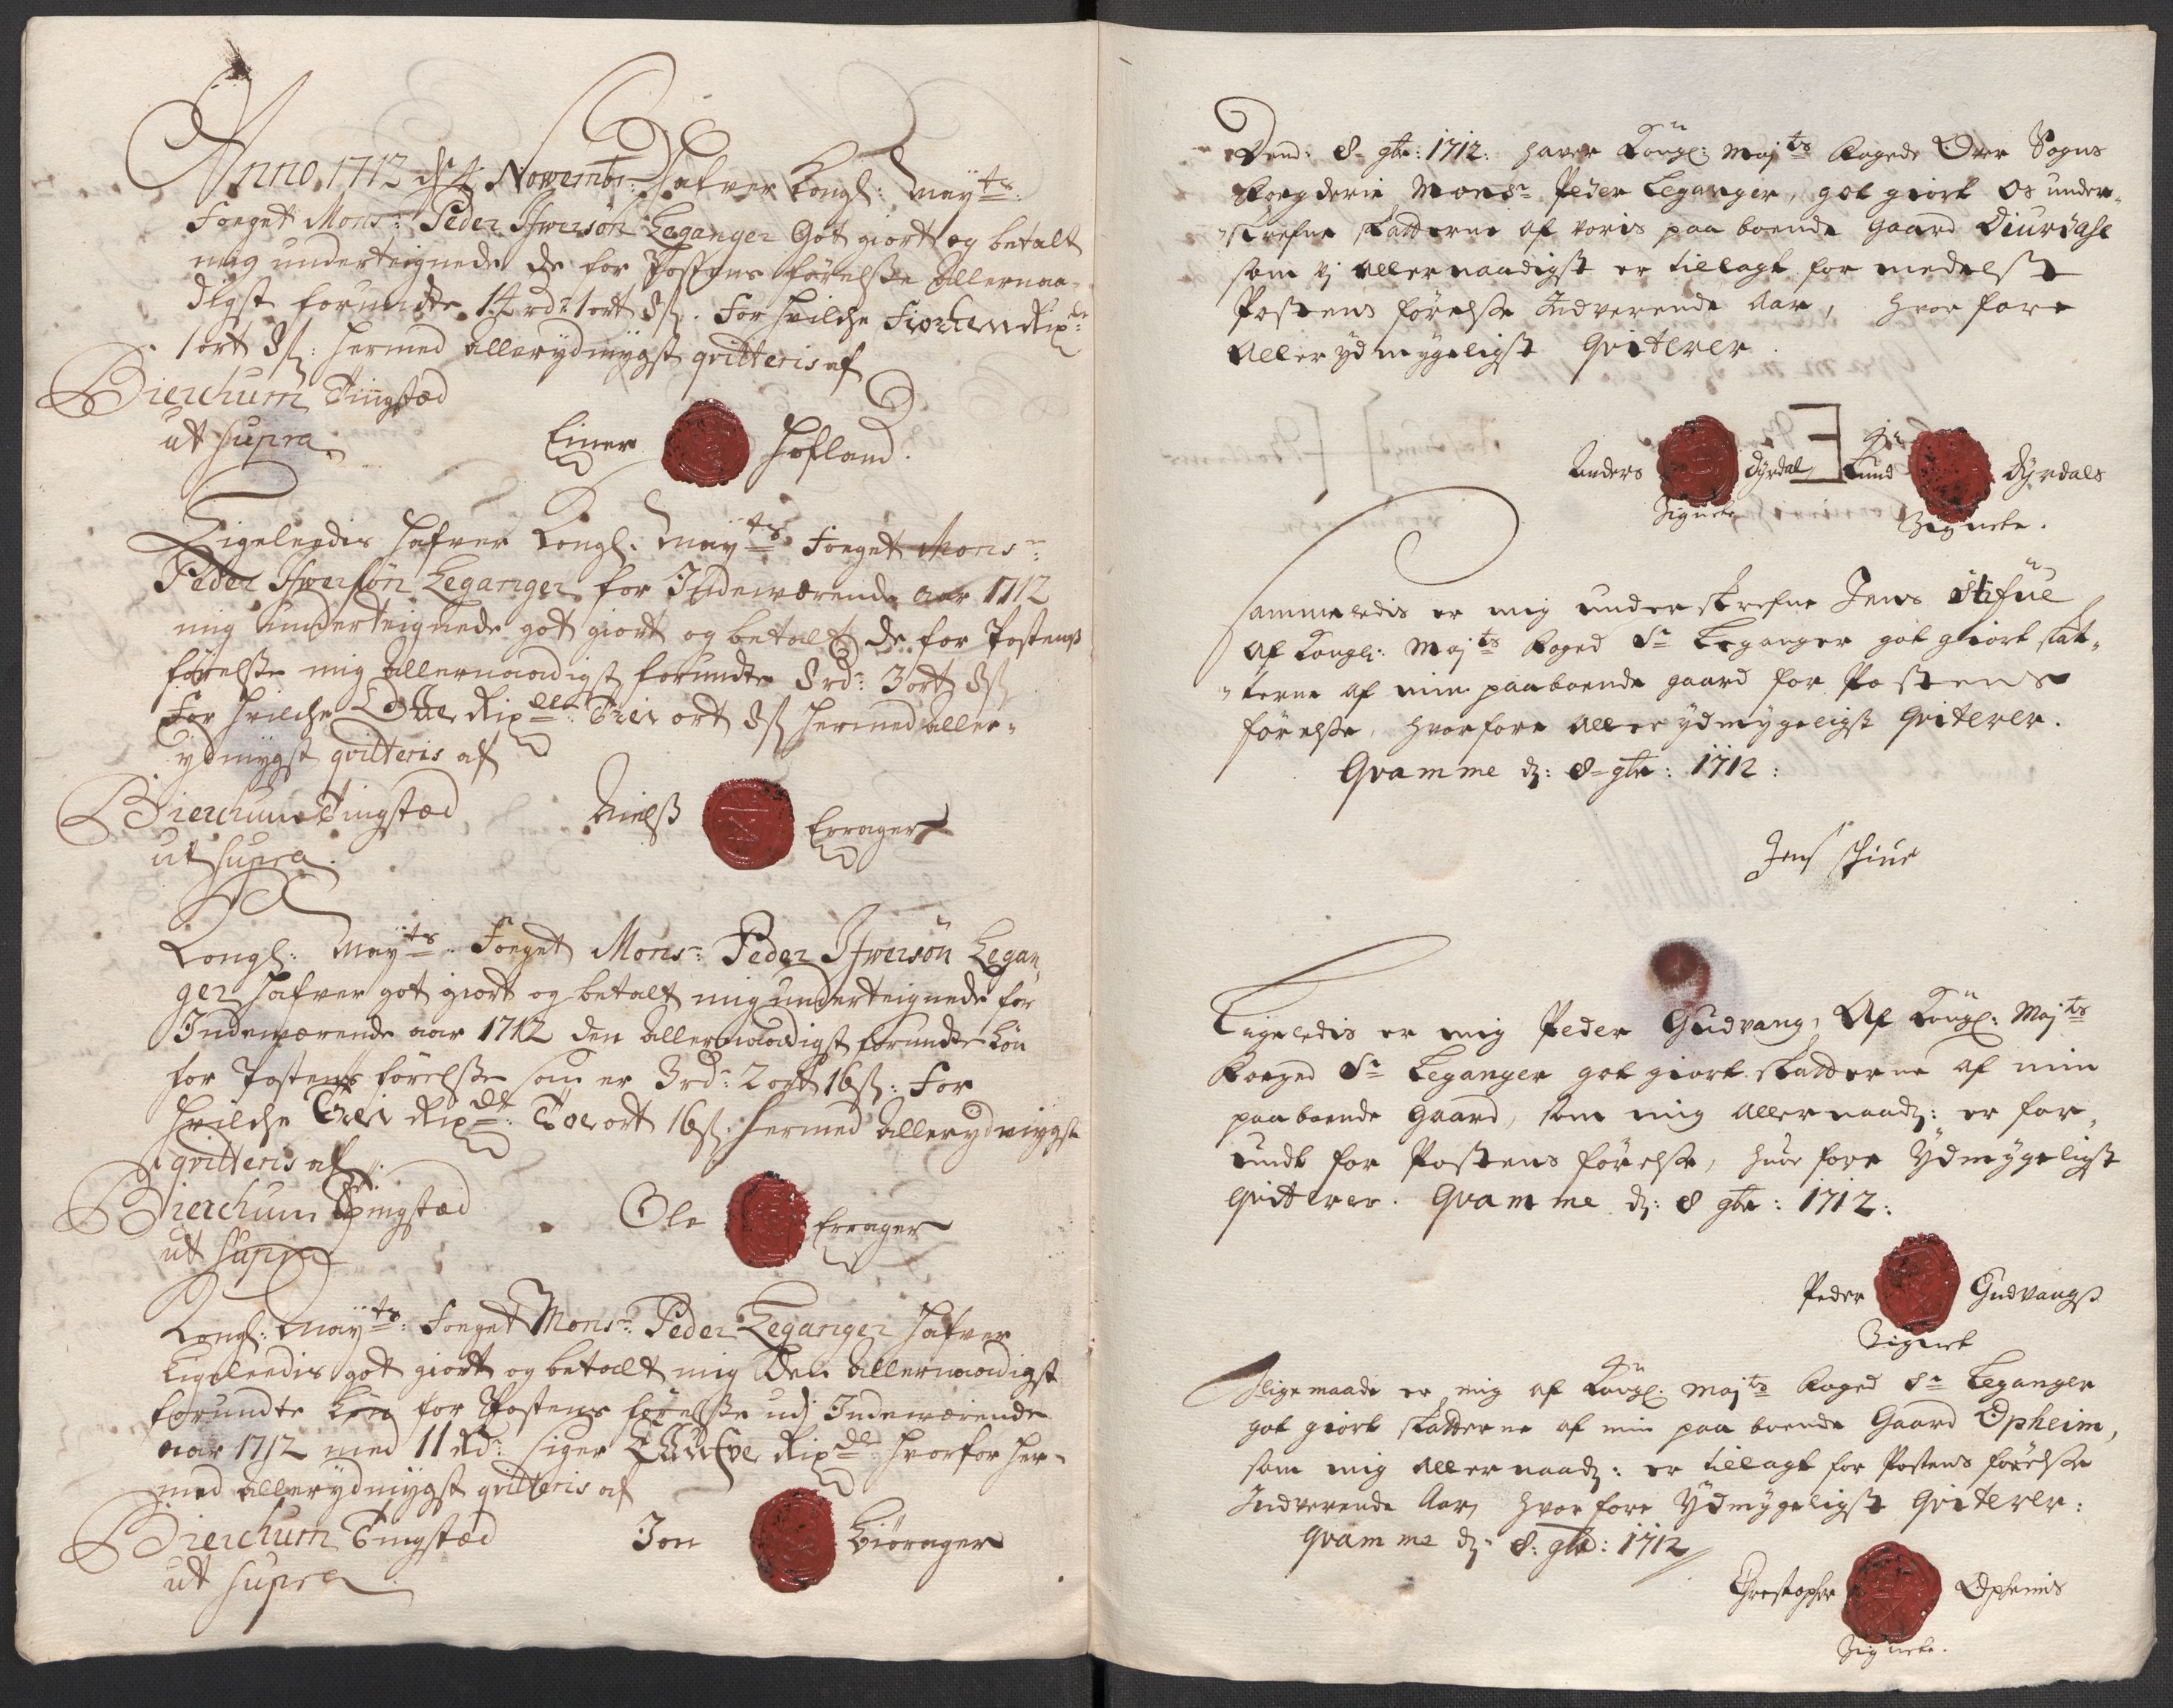 Anno 1712 d 4 Novembr: Hafver Kongl: Mayts
Foeget Mons: Peder Ifwersøn Leganger Got giort og betalt
mig underteignede de for Postens førelsse Allernaa-
digst forundte 14 rd: 1 ort 8 s. For hvilche Fiorten Rixdr
1 ort 8 s: hermed allerydmygst qvitteris af
Bierchum Tingstæd
ut supra.
Einer Hofland.
Ligeleedis Hafver Kongl: Mayts Foeget Monsr:
Peder Ifwersøn Leganger for Indeværende aar 1712
mig underteignede got giort og betalt de for Postenß
førelsse mig Allernaadigst forundte 8 rd: 3 ort 8 s
For hvilche Otte Rixdlr: Trei ort 8 s hermed Aller-
ydmygst qvitteris af
Bierchum Tingstæd
ut supra.
Nielß Erager
Kongl: Mayts Foeget Monsr: Peder Ifwersøn Legan,
ger Hafver got giort og betalt mig underteignede for
Indeværende aar 1712 den Allernaadigst forundte Løn
for Postens førelsse som er 3 rd: 2 ort 16 s: For
hvilche Trei Rixdr: Toe ort 16 s: hermed Allerydmygst
qvitteris af
Bierchum Tingstæd
ut supra
Ole Erager
Kongl: Mayts: Foeget Monsr: Peder Leganger Hafver
Ligeleedis got giort og betalt mig Den Allernaadigst
forundte Løn for Postens førelsse udj Indeværende
aar 1712 med 11 Rd: siger Ellefve Rixdr hvorfor her-
med allerydmygst qvitteris af
Bierchum Tingstæd
ut supra
Jon Biørager
Dend: 8 9br: 1712: haver Kongl: Majts Foged Over Sogns
Foegderie Monsr Peder Leganger, got giort Os under-
skrefne skatterne af voris paa boende Gaard Diurdahl
som vj allernaadigst er tillagt for medelst
Postens førelsse Indverende Aar, hvor fore
Aller ydmygeligst Qviterer.
Anders Dyrdal, Knud Dyrdals
Signete Signete.
Sammeledis er mig underskrefne Jens Stifue
af Kongl: Majts Foged Sr Leganger got giort skat-
terne af min paaboende gaard for Postens
førelsse, hvorfore aller ydmygeligst Qviterer.
Qvamme d: 8 9br: 1712:
Jens stiue
Ligeledis er mig Peder Gudvang, Af Kongl: Majts
Foeged Sr Leganger got giort skatterne af min
paaboende Gaard, som mig allernaad: er for,
undt for Postens førelsse, huor fore Ydmygeligst
Qvitterer. Qvamme d: 8 9br: 1712:
Peder Gudvangs
Signet
Lige maade er mig af Kongl: Majts Foged Sr Leganger
got giort skatterne af min paa boende Gaard Opheim,
som mig allernaad: er tillagt for Postens førelsse
Indverende Aar, hvor fore Ydmygeligst Qviterer:
Qvamme d: 8: 9br: 1712
Christopher Opheims
Signete.